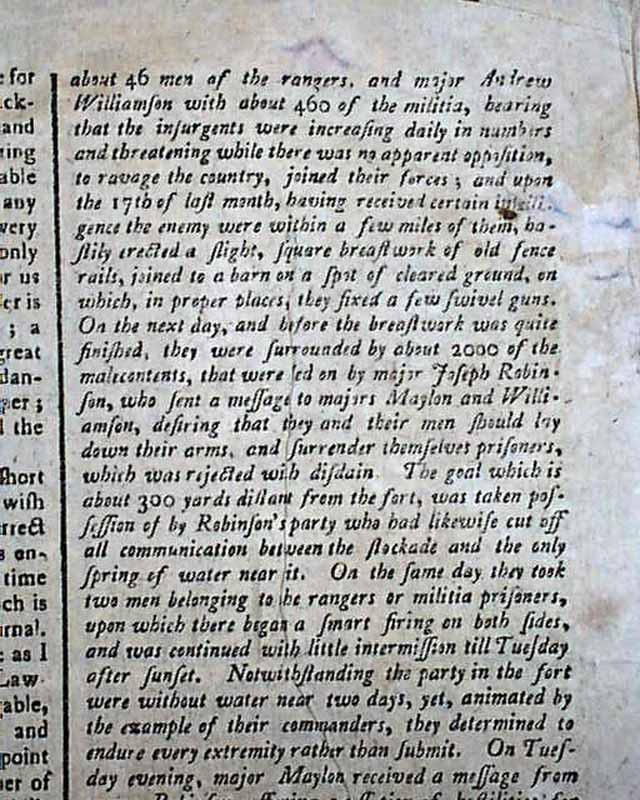 e for
ck-
and
ing
able
any
very
only
or us
er is
; a
great
dan-
per;
d the
short
wish
rrect
s en-
time
ch is
urnal.
: as I
Law
able,
and
point
er of
about 46 men of the rangers, and major Andrew
Williamſon with about 460 of the militia, hearing
that the inſurgents were increaſing daily in numbers
and threatening while there was no apparent oppoſition,
to ravage the country, joined their forces; and upon
the 17th of laſt month, having received certain intelli-
gence the enemy were within a few miles of them, ha-
ſtily erected a ſlight, ſquare breaſtwork of old fence
rails, joined to a barn on a ſpot of cleared ground, on
which, in proper places, they fixed a few ſwivel guns.
On the next day, and before the breaſtwork was quite
finiſhed, they were ſurrounded by about 2000 of the
malecontents, that were led on by major Joſeph Robin-
ſon, who ſent a meſſage to majors Maylon and Willi-
amſon, deſiring that they and their men ſhould lay
down their arms, and ſurrender themſelves priſoners,
which was rejected with diſdain The goal which is
about 300 yards diſtant from the fort, was taken poſ-
ſeſſion of by Robinſon's party who had likewiſe cut off
all communication between the ſtockade and the only
ſpring of water near it. On the ſame day they took
two men belonging to the rangers or militia priſoners,
upon which there began a ſmart firing on both ſides,
and was continued with little intermiſſion till Tueſday
after ſunſet. Notwithſtanding the party in the fort
were without water near two days, yet, animated by
the example of their commanders, they determined to
endure every extremity rather than ſubmit. On Tueſ-
day evening, major Maylon received a meſſage from